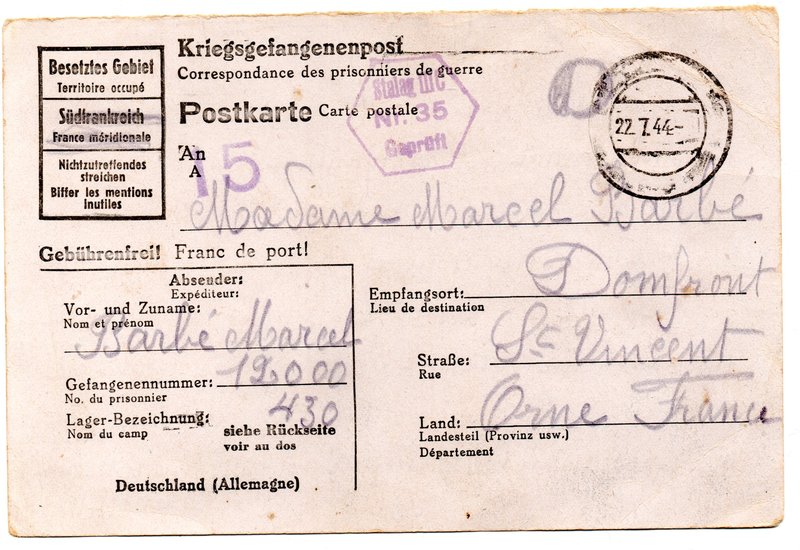 Besetztes Gebiet
Territoire occupé
Südfrankreich
France méridionale
Nichtzutreffendes
streichen
Biffer les mentions
inutiles
Kriegsgefangenenpost
Correspondance des prisonniers de guerre
Postkarte Carte postale
Stalag III C
Nr. 35
Geprüft
22.7.44-
An
A
15
Madame Marcel Barbé
Gebührenfrei! Franc de port!
Absender:
Expéditeur:
Vor- und Zuname:
Nom et prénom
Barbé Marcel
Gefangenennummer: 12000
No. du prisonnier
Lager-Bezeichnung: 430
Nom du camp
siehe Rückseite
voir au dos
Deutschland (Allemagne)
Empfangsort: Domfront
Lieu de destination
Straße: St Vincent
Rue
Land: Orne France
Landesteil (Provinz usw.)
Département